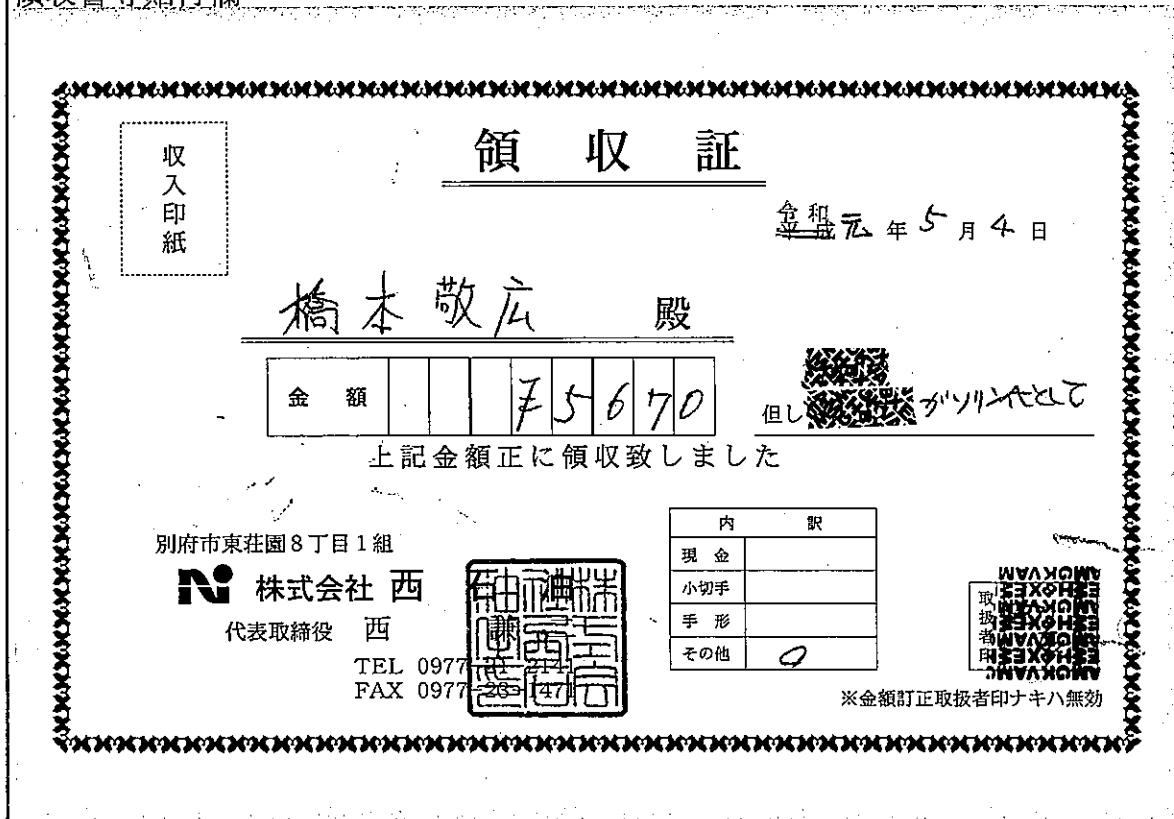 領収証
収入印紙
令和
平成元年5月4日
橋本敬広 殿
金額 ¥5670
但し ガソリン代として
上記金額正に領収致しました
別府市東荘園8丁目1組
株式会社 西 石油
代表取締役 西 謙
TEL 0977-21-2141
FAX 0977-23-1471
内訳
現金
小切手
手形
その他 〇
取扱者印
※金額訂正取扱者印ナキハ無効